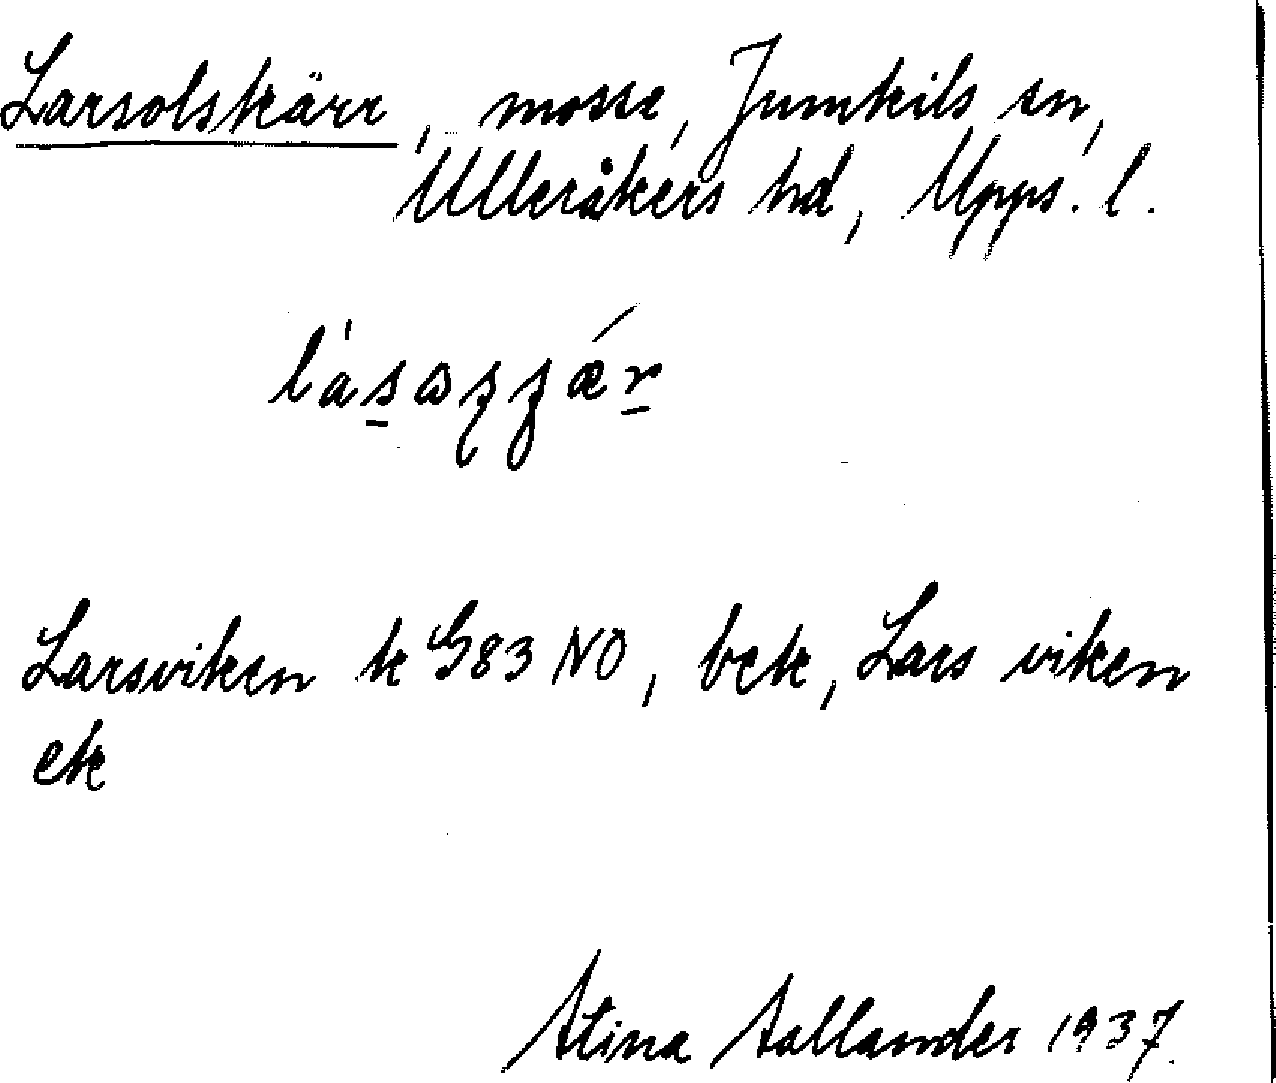 Larsolskärr, mosse, Jumkils sn,
Ulleråkers hd, Upps. l.
Larsviken k G83 NO, bek, Lars viken
ek
Stina Sollander 1937.